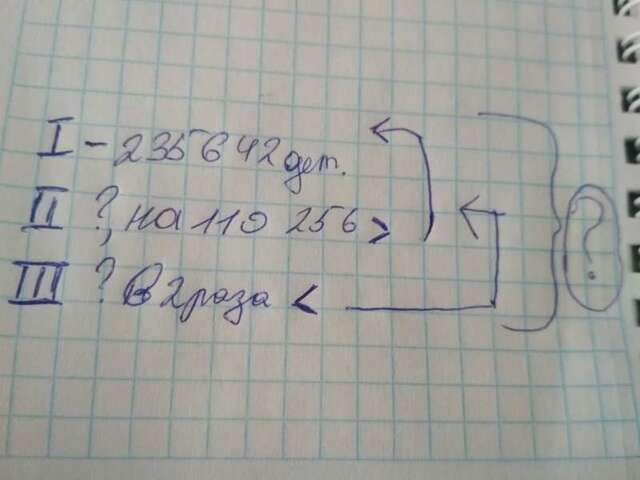 I - 235 642 дет.
II ?, на 110 256 >
III ? в 2 раза <
?